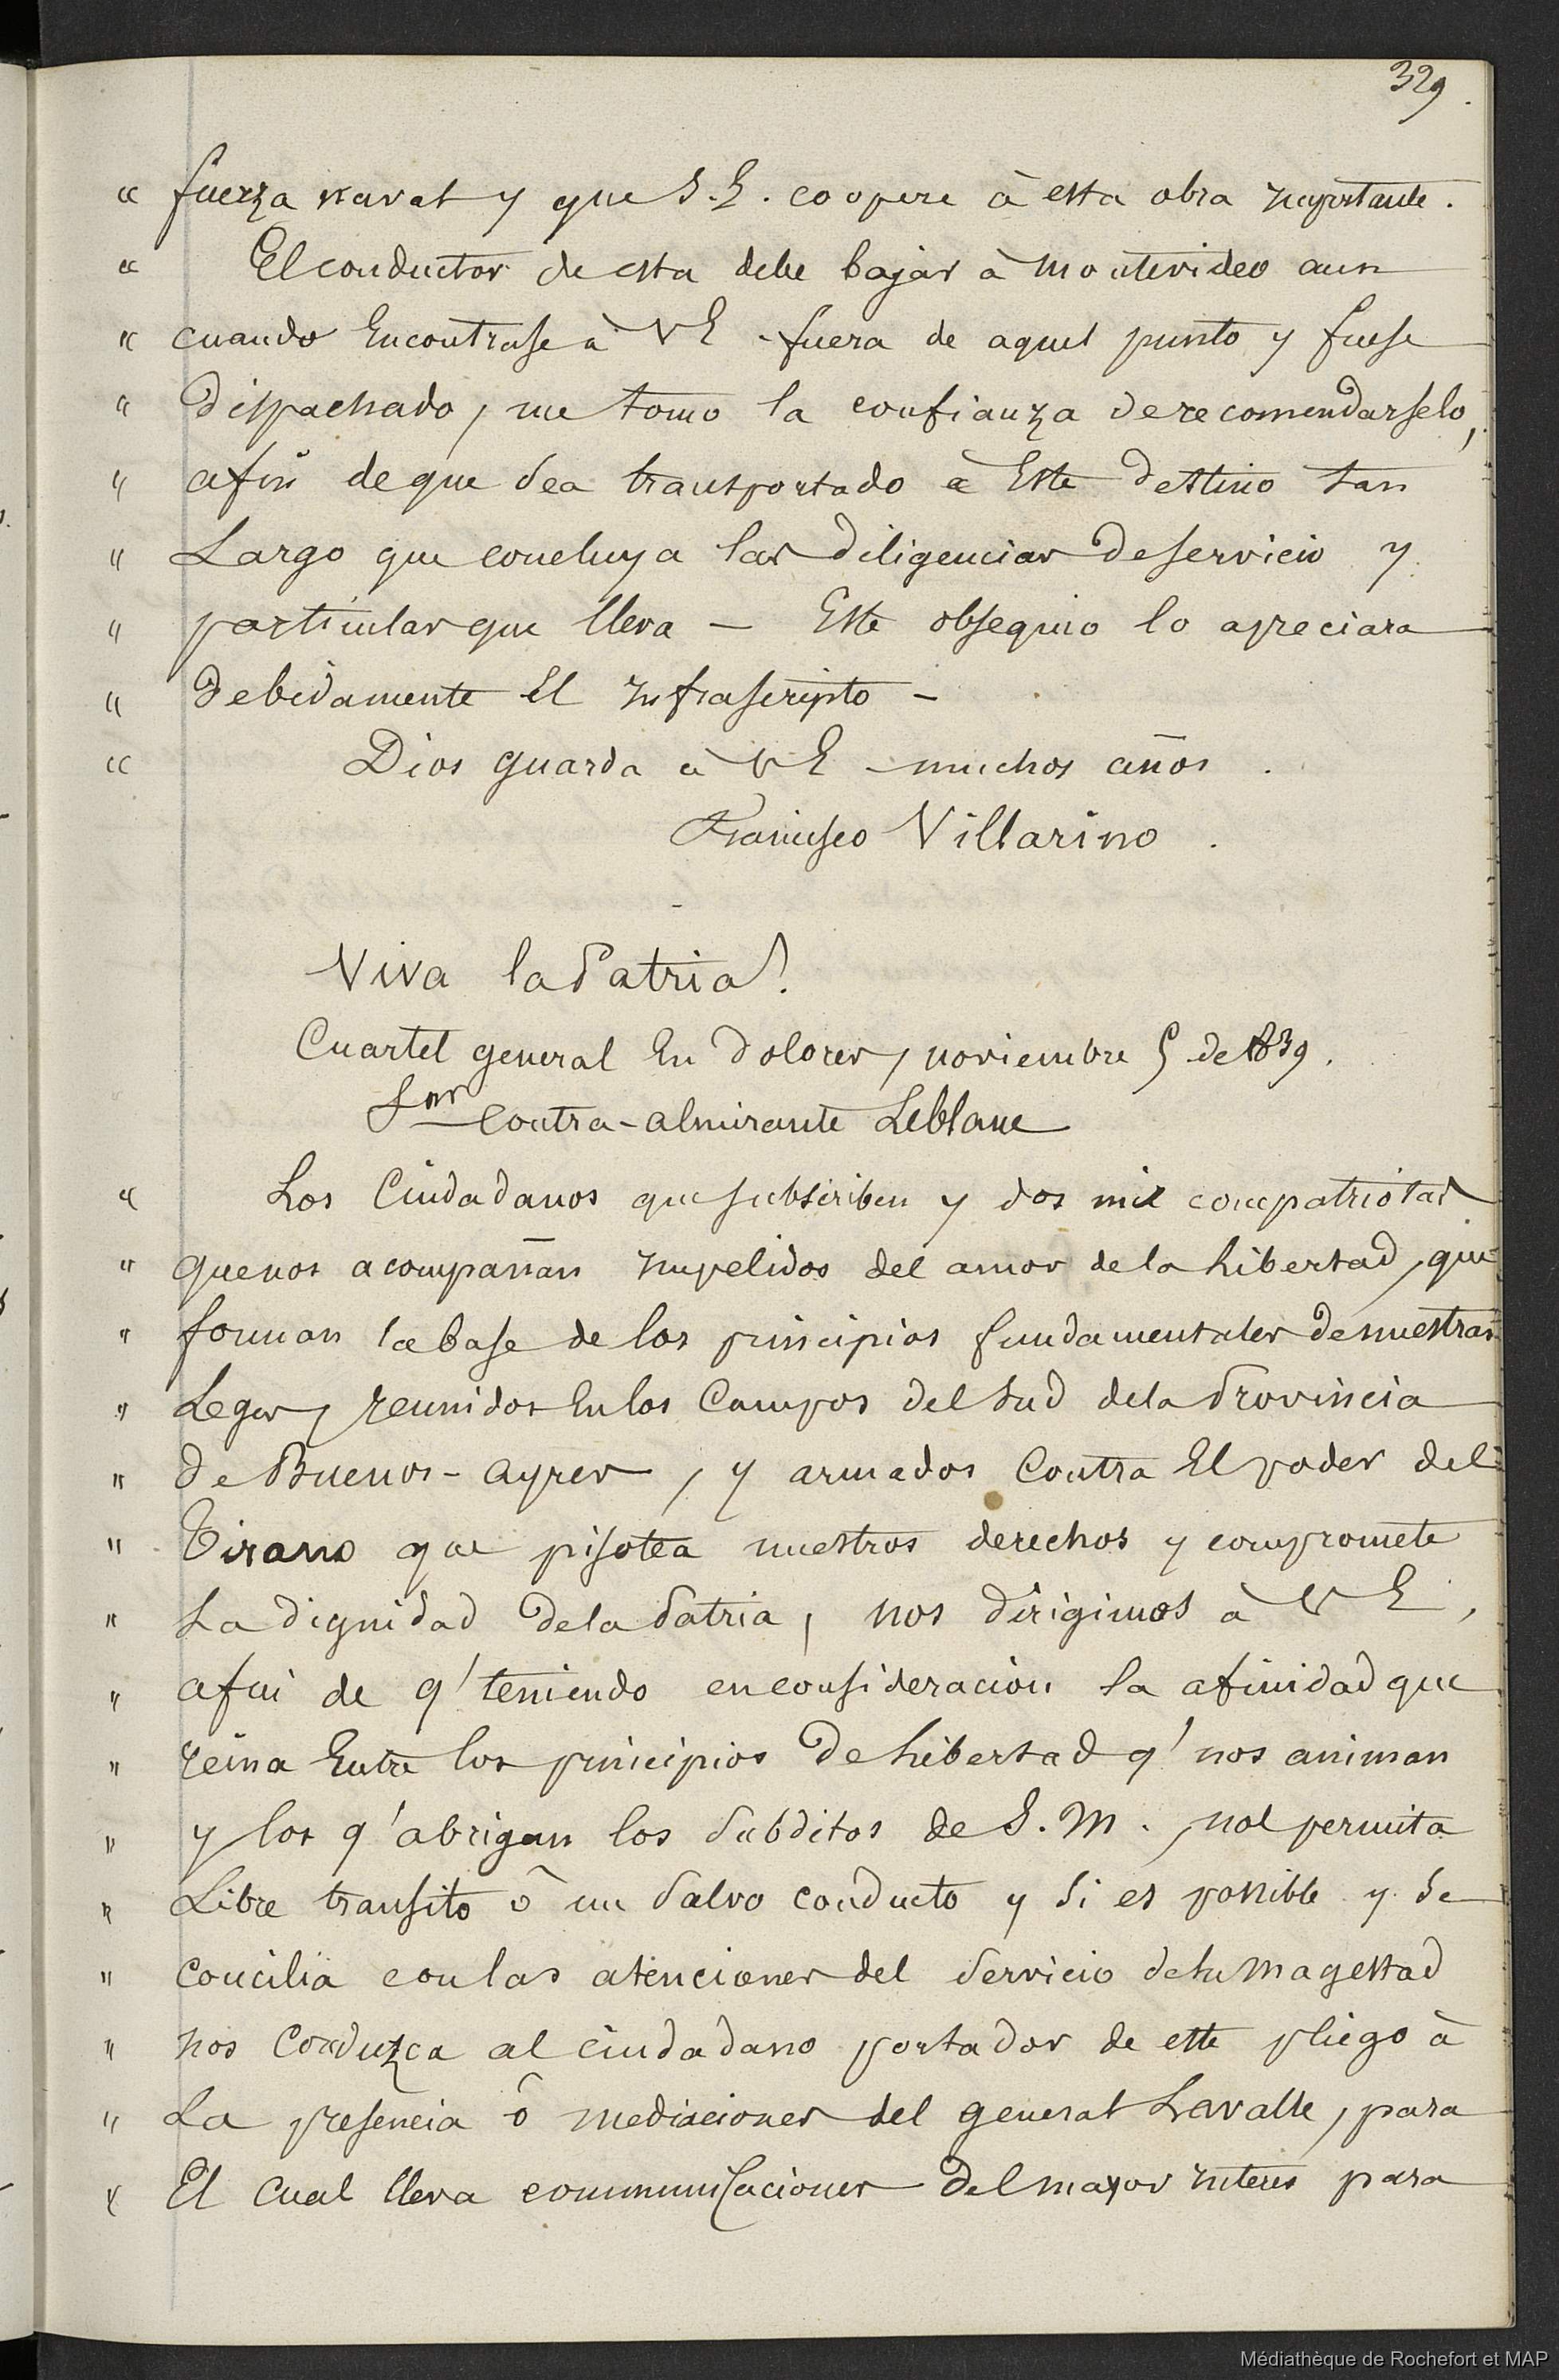 329.
" fuerza naval y que S.E. coopere à esta obra importante.
" El conductor de esta debe bajar à Montevideo aun
" cuando Encontrase à VE fuera de aquel punto y fuese
" Dispachado, me tomo la confianza de recomendarselo,
" afin de que sea transportado à Este destino tan
" Largo que concluya las diligencias de servicio y
" particular que lleva — Este obsequio lo apreciara
" debidamente El Infrascripto —
" Dios guarda à VE muchos años.
Francisco Villarino.
Viva la Patria!
Cuartel general En Dolores, noviembre 5 de 1839.
Snr Contra-almirante Leblanc
" Los Ciudadanos que subscriben y dos mil compatriotas
" que nos acompañan impelidos del amor de la Libertad, que
" forman la base de los principios fundamentales de nuestras
" Leges, reunidos En los Campos del Sud de la Provincia
" de Buenos-Ayres, y armados Contra El poder del
" Tirano que pisotea nuestros derechos y compromete
" La dignidad de la Patria, nos dirigimos à VE,
" afin de q' teniendo en consideracion la afinidad que
" reina Entre los principios de Libertad q' nos animan
" y los q' abrigan los Subditos de S.M., nos permita
" Libre transito ô un Salvo conducto y si es posible y se
" concilia con las atenciones del Servicio de su Magestad
" nos Conduzca al ciudadano portador de este pliego à
" La presencia ô mediaciones del general Lavalle, para
" El Cual lleva communicaciones del mayor interes para
Médiathèque de Rochefort et MAP